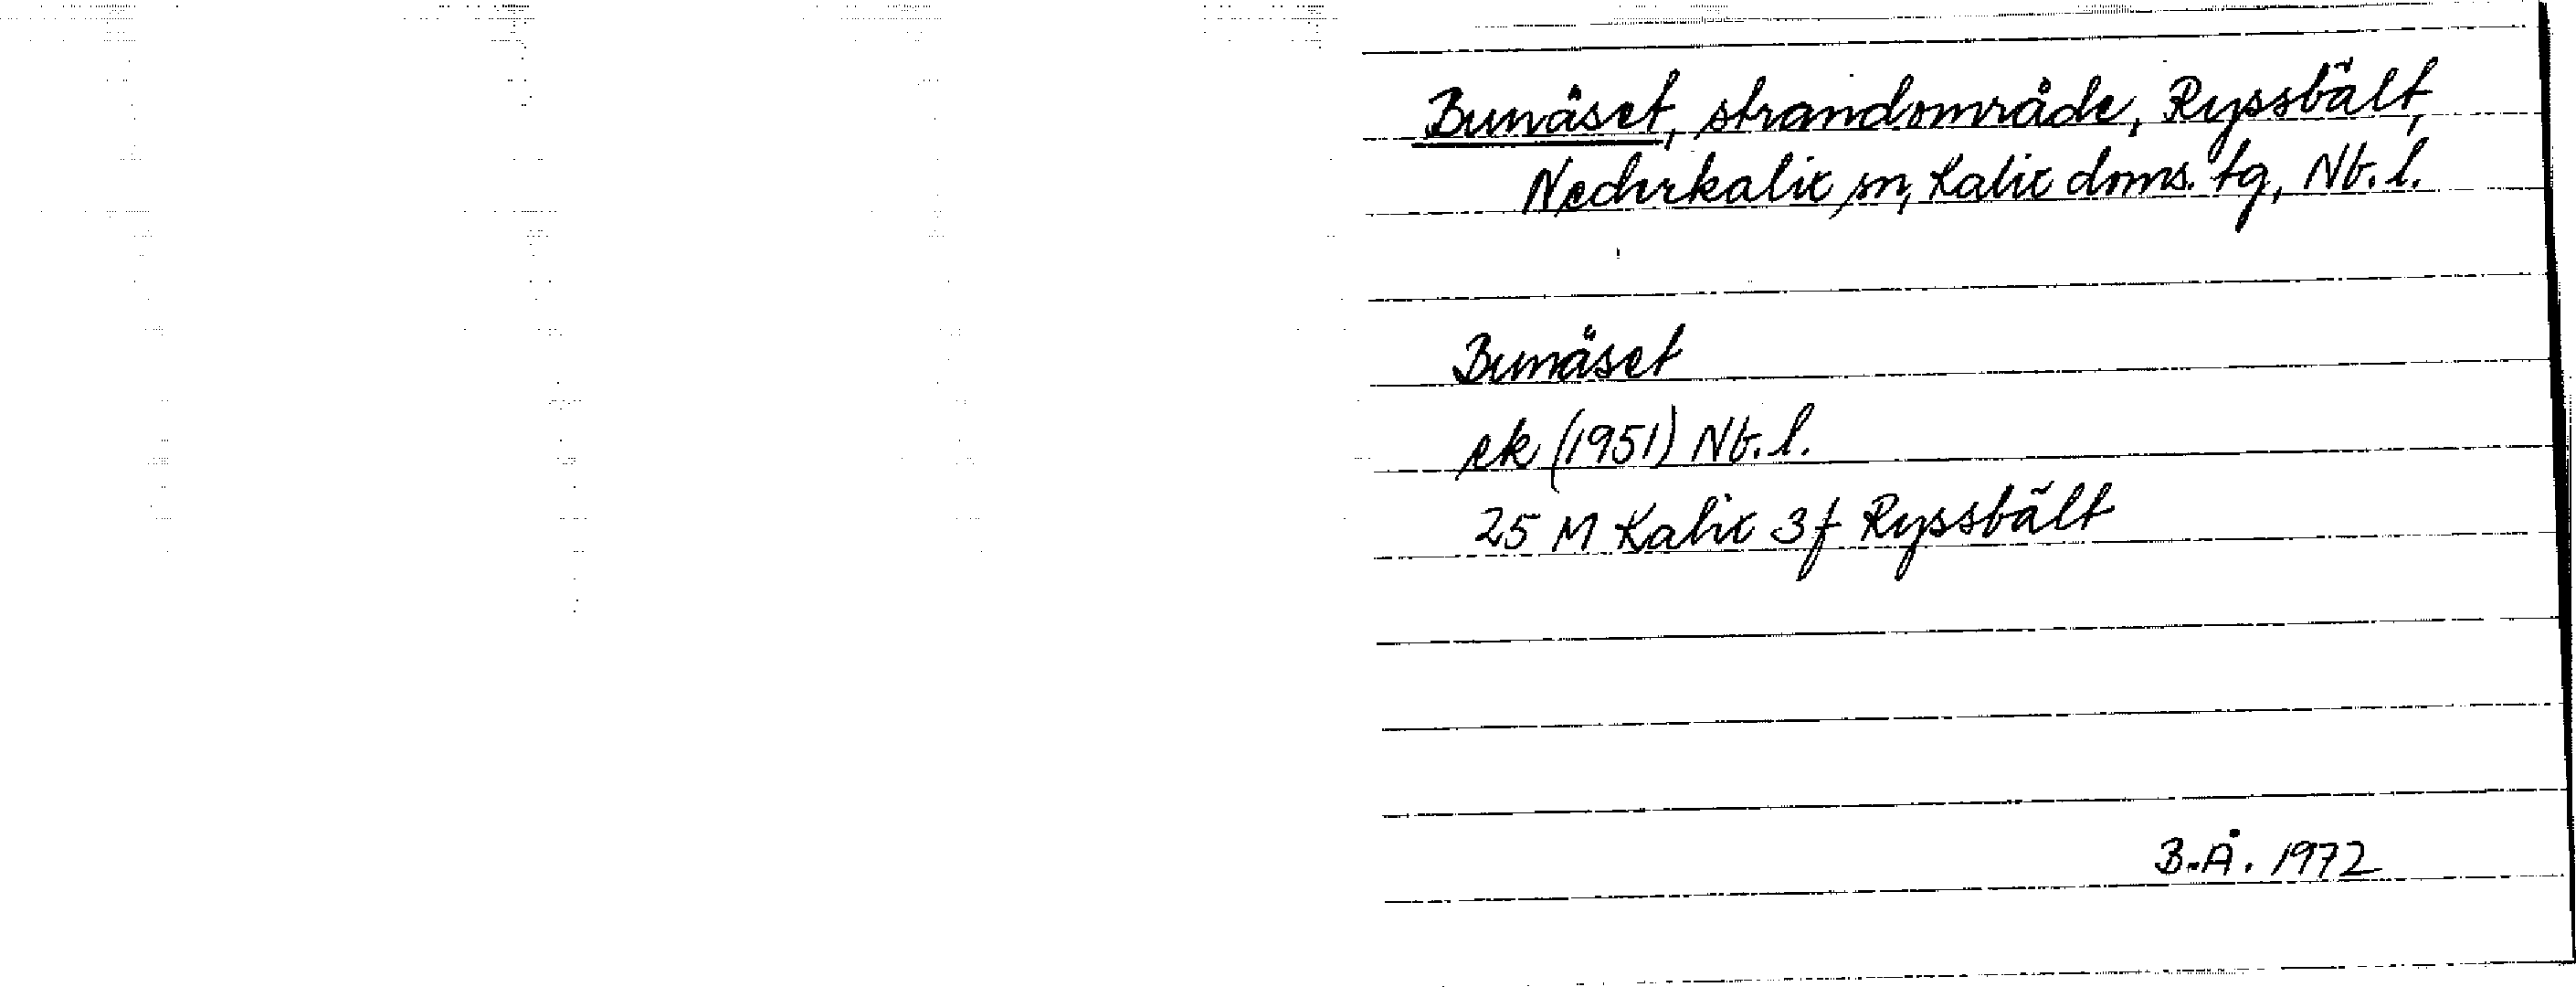 Bunäset, strandområde, Ryssbält,
Nederkalix sn, Kalix doms. tg, Nb. l.
Bunäset
ek (1951) Nb. l.
25 M Kalix 3f Ryssbält
B.Å. 1972